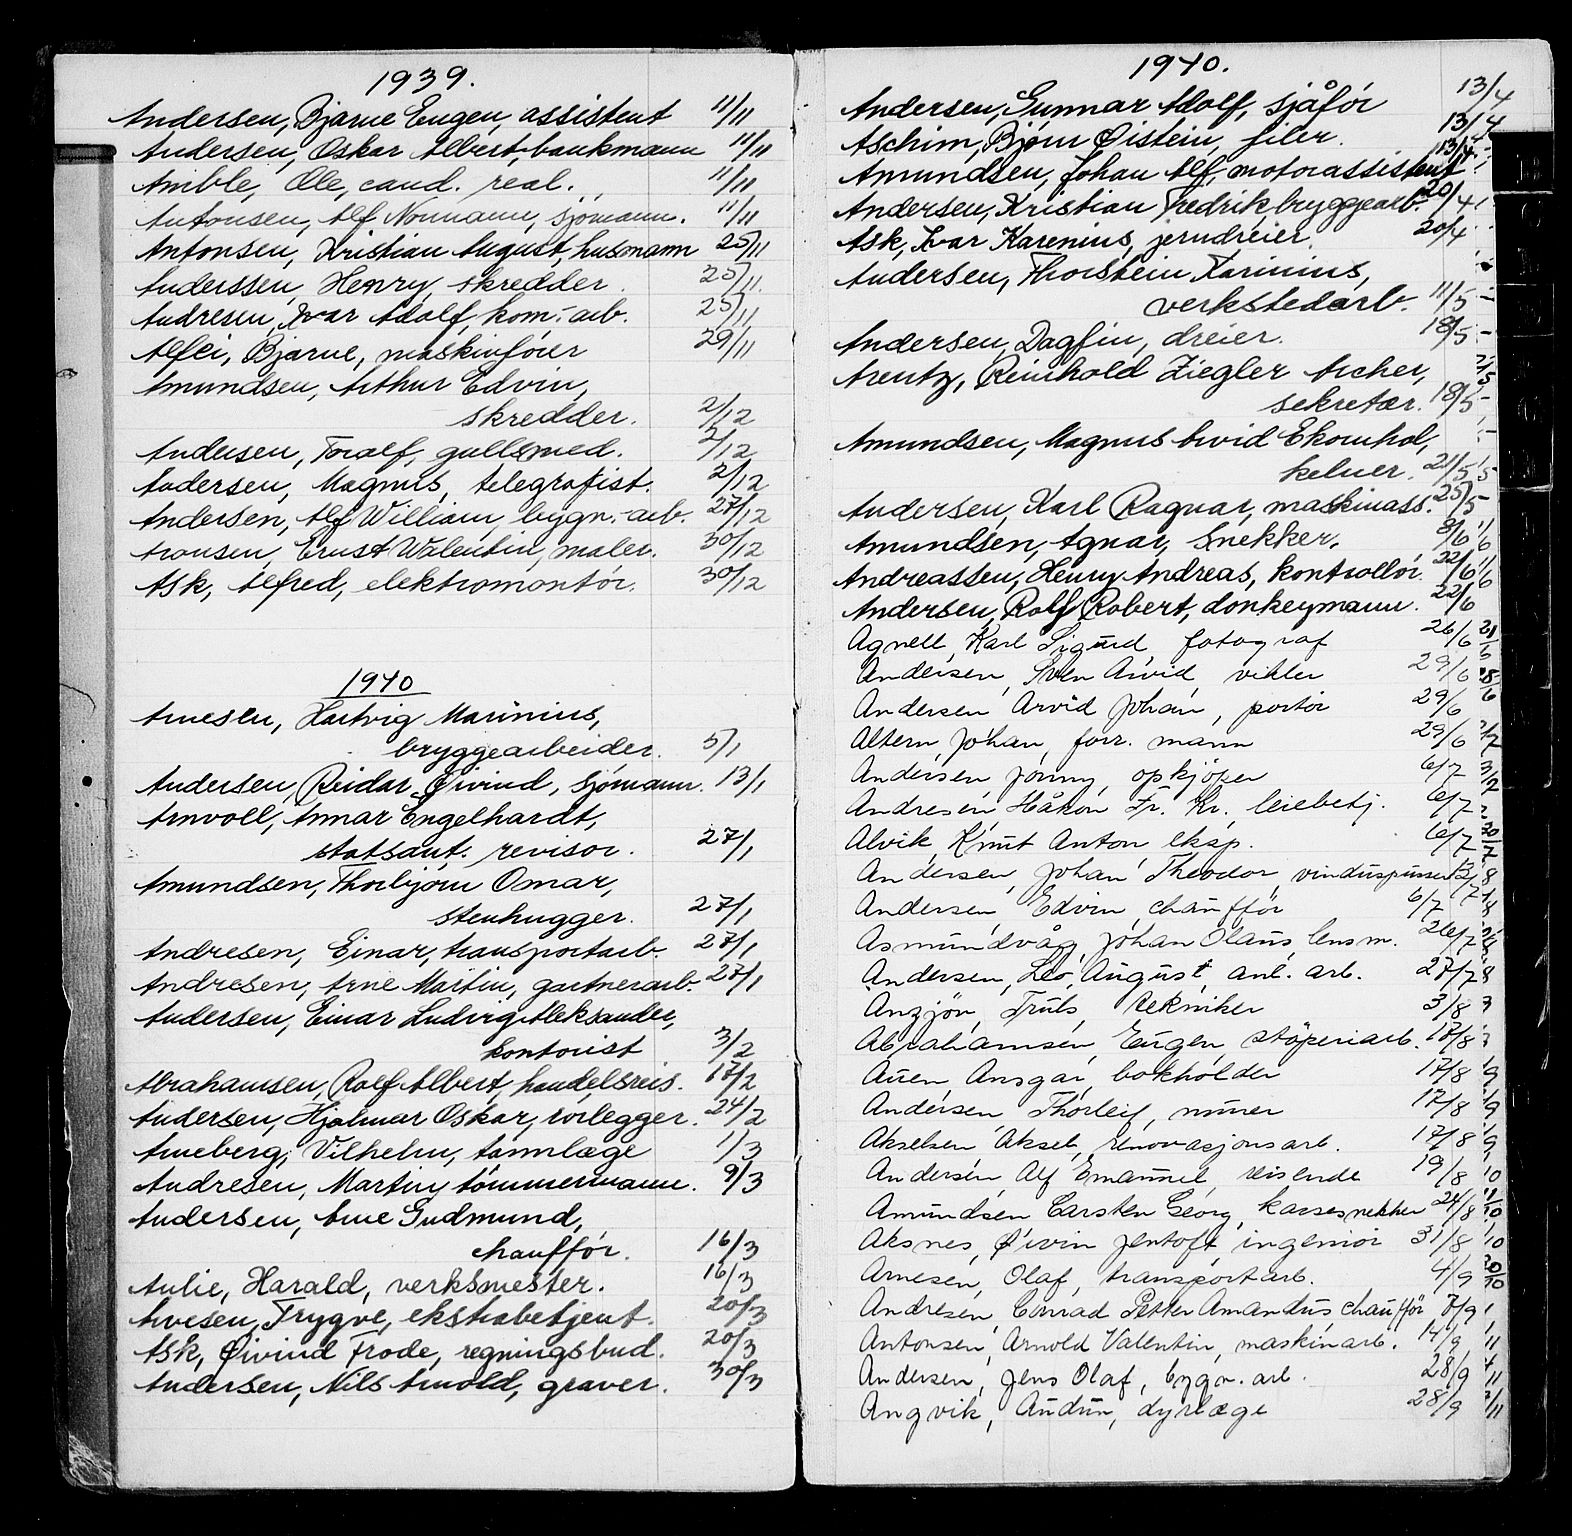 1939.
Andersen, Bjarne Eugen, assistent 11/11
Andersen, Oskar Albert, bankmann 11/11
Amble, Ole, cand. real. 11/11
Antonsen, Alf Normann, sjømann. 11/11
Antonsen, Kristian August, husmann 25/11
Anderssen, Henry, skredder. 25/11
Andresen, Ivar Adolf, kom.-arb. 25/11
Alfei, Bjarne, maskinfører 29/11
Amundsen, Arthur Edvin,
skredder. 2/12
Andersen, Toralf, gullsmed. 2/12
Andersen, Magnus, telegrafist. 2/12
Andersen, Alf William, bygn.-arb. 27/12
Aronsen, Ernst Walentin, maler. 30/12
Ask, Alfred, elektromontør. 30/12
1940
Arnesen, Hartvig Marinius,
bryggearbeider. 5/1
Andersen, Reidar Øivind, sjømann. 13/1
Arnvoll, Annar Engelhardt,
statsaut. revisor. 27/1
Amundsen, Thorbjørn Omar,
stenhugger. 27/1
Andresen, Einar, transportarb. 27/1
Andresen, Arne Martin, gartnerarb. 27/1
Andersen, Einar Ludvig Aleksander,
kontorist 3/2
Abrahamsen, Rolf Albert, handelsreis. 17/2
Andersen, Hjalmar Oskar, rørlegger. 24/2
Arneberg, Vilhelm, tannlæge 1/3
Andresen, Martin, tømmermann. 9/3
Andersen, Arne Gudmund,
chauffør. 16/3
Aulie, Harald, verksmester. 16/3
Arvesen, Trygve, ekstrabetjent. 20/3
Ask, Øivind Frode, regningsbud. 20/3
Andersen, Nils Arnold, graver. 30/3
1940.
Andersen, Gunnar Adolf, sjåfør 13/4
Aschim, Bjørn Øistein, filer. 13/4
Amundsen, Johan Alf, motorassistent 13/4
Andersen, Kristian Fredrik bryggearb. 20/4
Ask, Ivar Karenius, jerndreier. 20/4
Andersen, Thorstein Karinius,
verkstedarb. 11/5
Andersen, Dagfin, dreier. 18/5
Arentz, Reinhold Ziegler Ascher,
sekretær. 18/5
Amundsen, Magnus Arvid Ekornhol,
kelner. 21/5
Andersen, Karl Ragnar, maskinass. 25/5
Amundsen, Agnar, Snekker. 8/6
Andreassen, Henry Andreas, kontrollør. 22/6
Andersen, Rolf Robert, donkeymann. 22/6
Agnell, Karl Sigurd, fotograf 26/6
Andersen, Sven Arvid, vikler 29/6
Andersen Arvid Johan, portør 29/6
Altern, Johan, forr. mann 29/6
Andersen Jonny, opkjøper 6/7
Andresen, Håkon Fr. Kr., leiebetj. 6/7
Alvik Knut Anton eksp. 6/7
Andersen, Johan Theodor, vinduspusser
Andersen Edvin, chauffør 6/7
Asmundvåg, Johan Olaus, lensm. 26/7
Andersen, Leo, August, anl. arb. 27/7
Anzjøn, Truls, tekniker 3/8
Abrahamsen, Eugen, støperiarb. 17/8
Auen Ansgar, bokholder 17/8
Andersen Thorleif, murer 17/8
Akselsen Aksel, renovasjonsarb. 17/8
Andersen, Alf Emanuel, reisende 19/8
Amundsen Carsten Georg, kassesnekker 24/8
Aksnes, Øivin Jentoft ingeniør 31/8
Arnesen, Olaf, transportarb. 4/9
Andresen, Conrad Petter Amandus, chauffør 7/9
Antonsen, Arnold Valentin, maskinarb. 14/9
Andersen, Jens Olaf, bygn. arb. 28/9
Angvik, Audun, dyrlæge 28/9